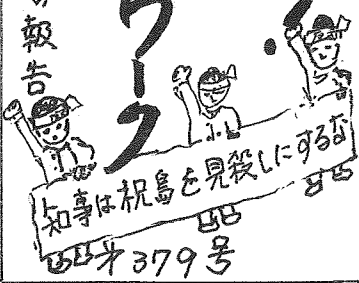 報告
ワーク
知事は祝島を見殺しにするな
才379号